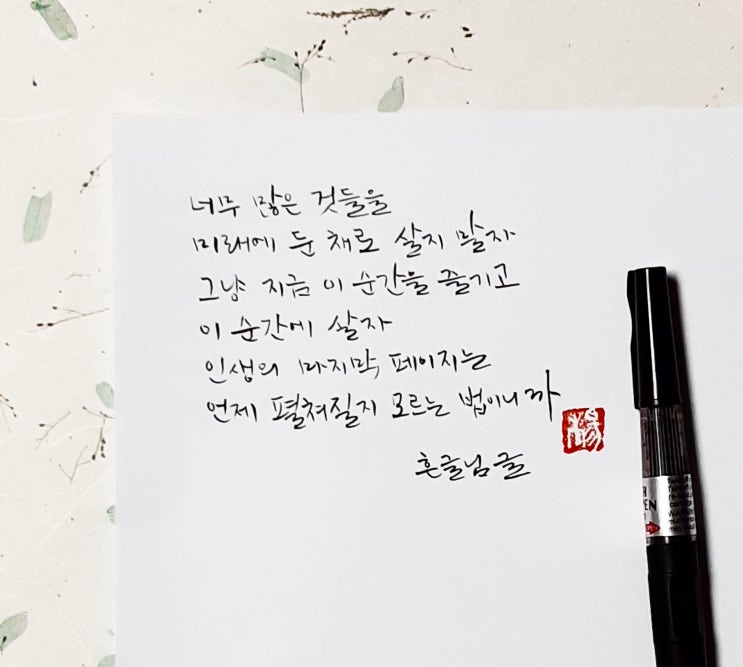 너무 많은 것들을
미래에 둔 채로 살지 말자
그냥 지금 이 순간을 즐기고
이 순간에 살자
인생의 마지막 페이지는
언제 펼쳐질지 모르는 법이니까
흔글님 글